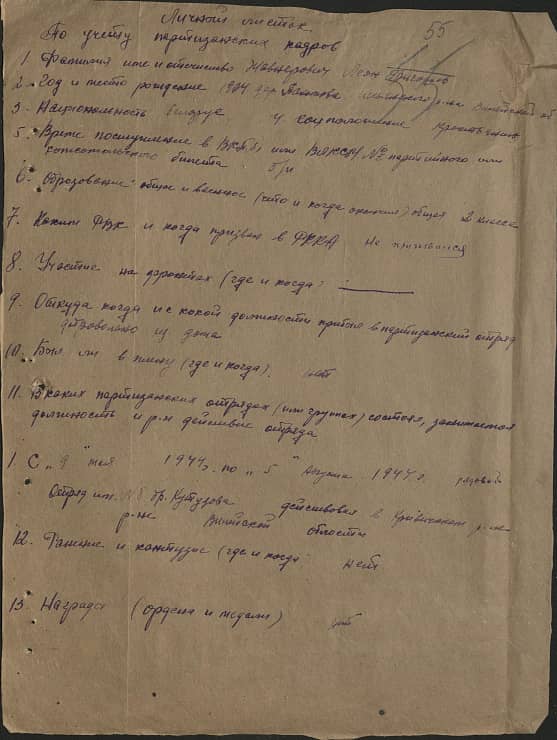 Личный листок
По учету партизанских кадров
55
1. Фамилия имя и отчество
2. Год и место рождение 1904 дер.
3. Национальность белорус 4 соцположение
5. Время поступление в ВКП(б) или ВЛКСМ № партийного или
комсомольского билета б/п
6. Образование: общее и военное (что и когда окончил) общее 2 класса
7. Каким РВК и когда призван в РККА не призывался
8. Участие на фронтах (где и когда:
9. Откуда когда и с какой должности прибыл в партизанский отряд
добровольно из дома
10. Был ли в плену (где и когда). нет
11. В каких партизанских отрядах (или группах) состоял, занимаемая
должность и р-н действие отряда
1. С „9" мая 1944г. по „5" Августа 1944г. рядовой
Отряд им. № бр. Кутузова действовал в
р-не области
12. Ранение и контузие (где и когда: нет
13. Награда (ордена и медали) нет